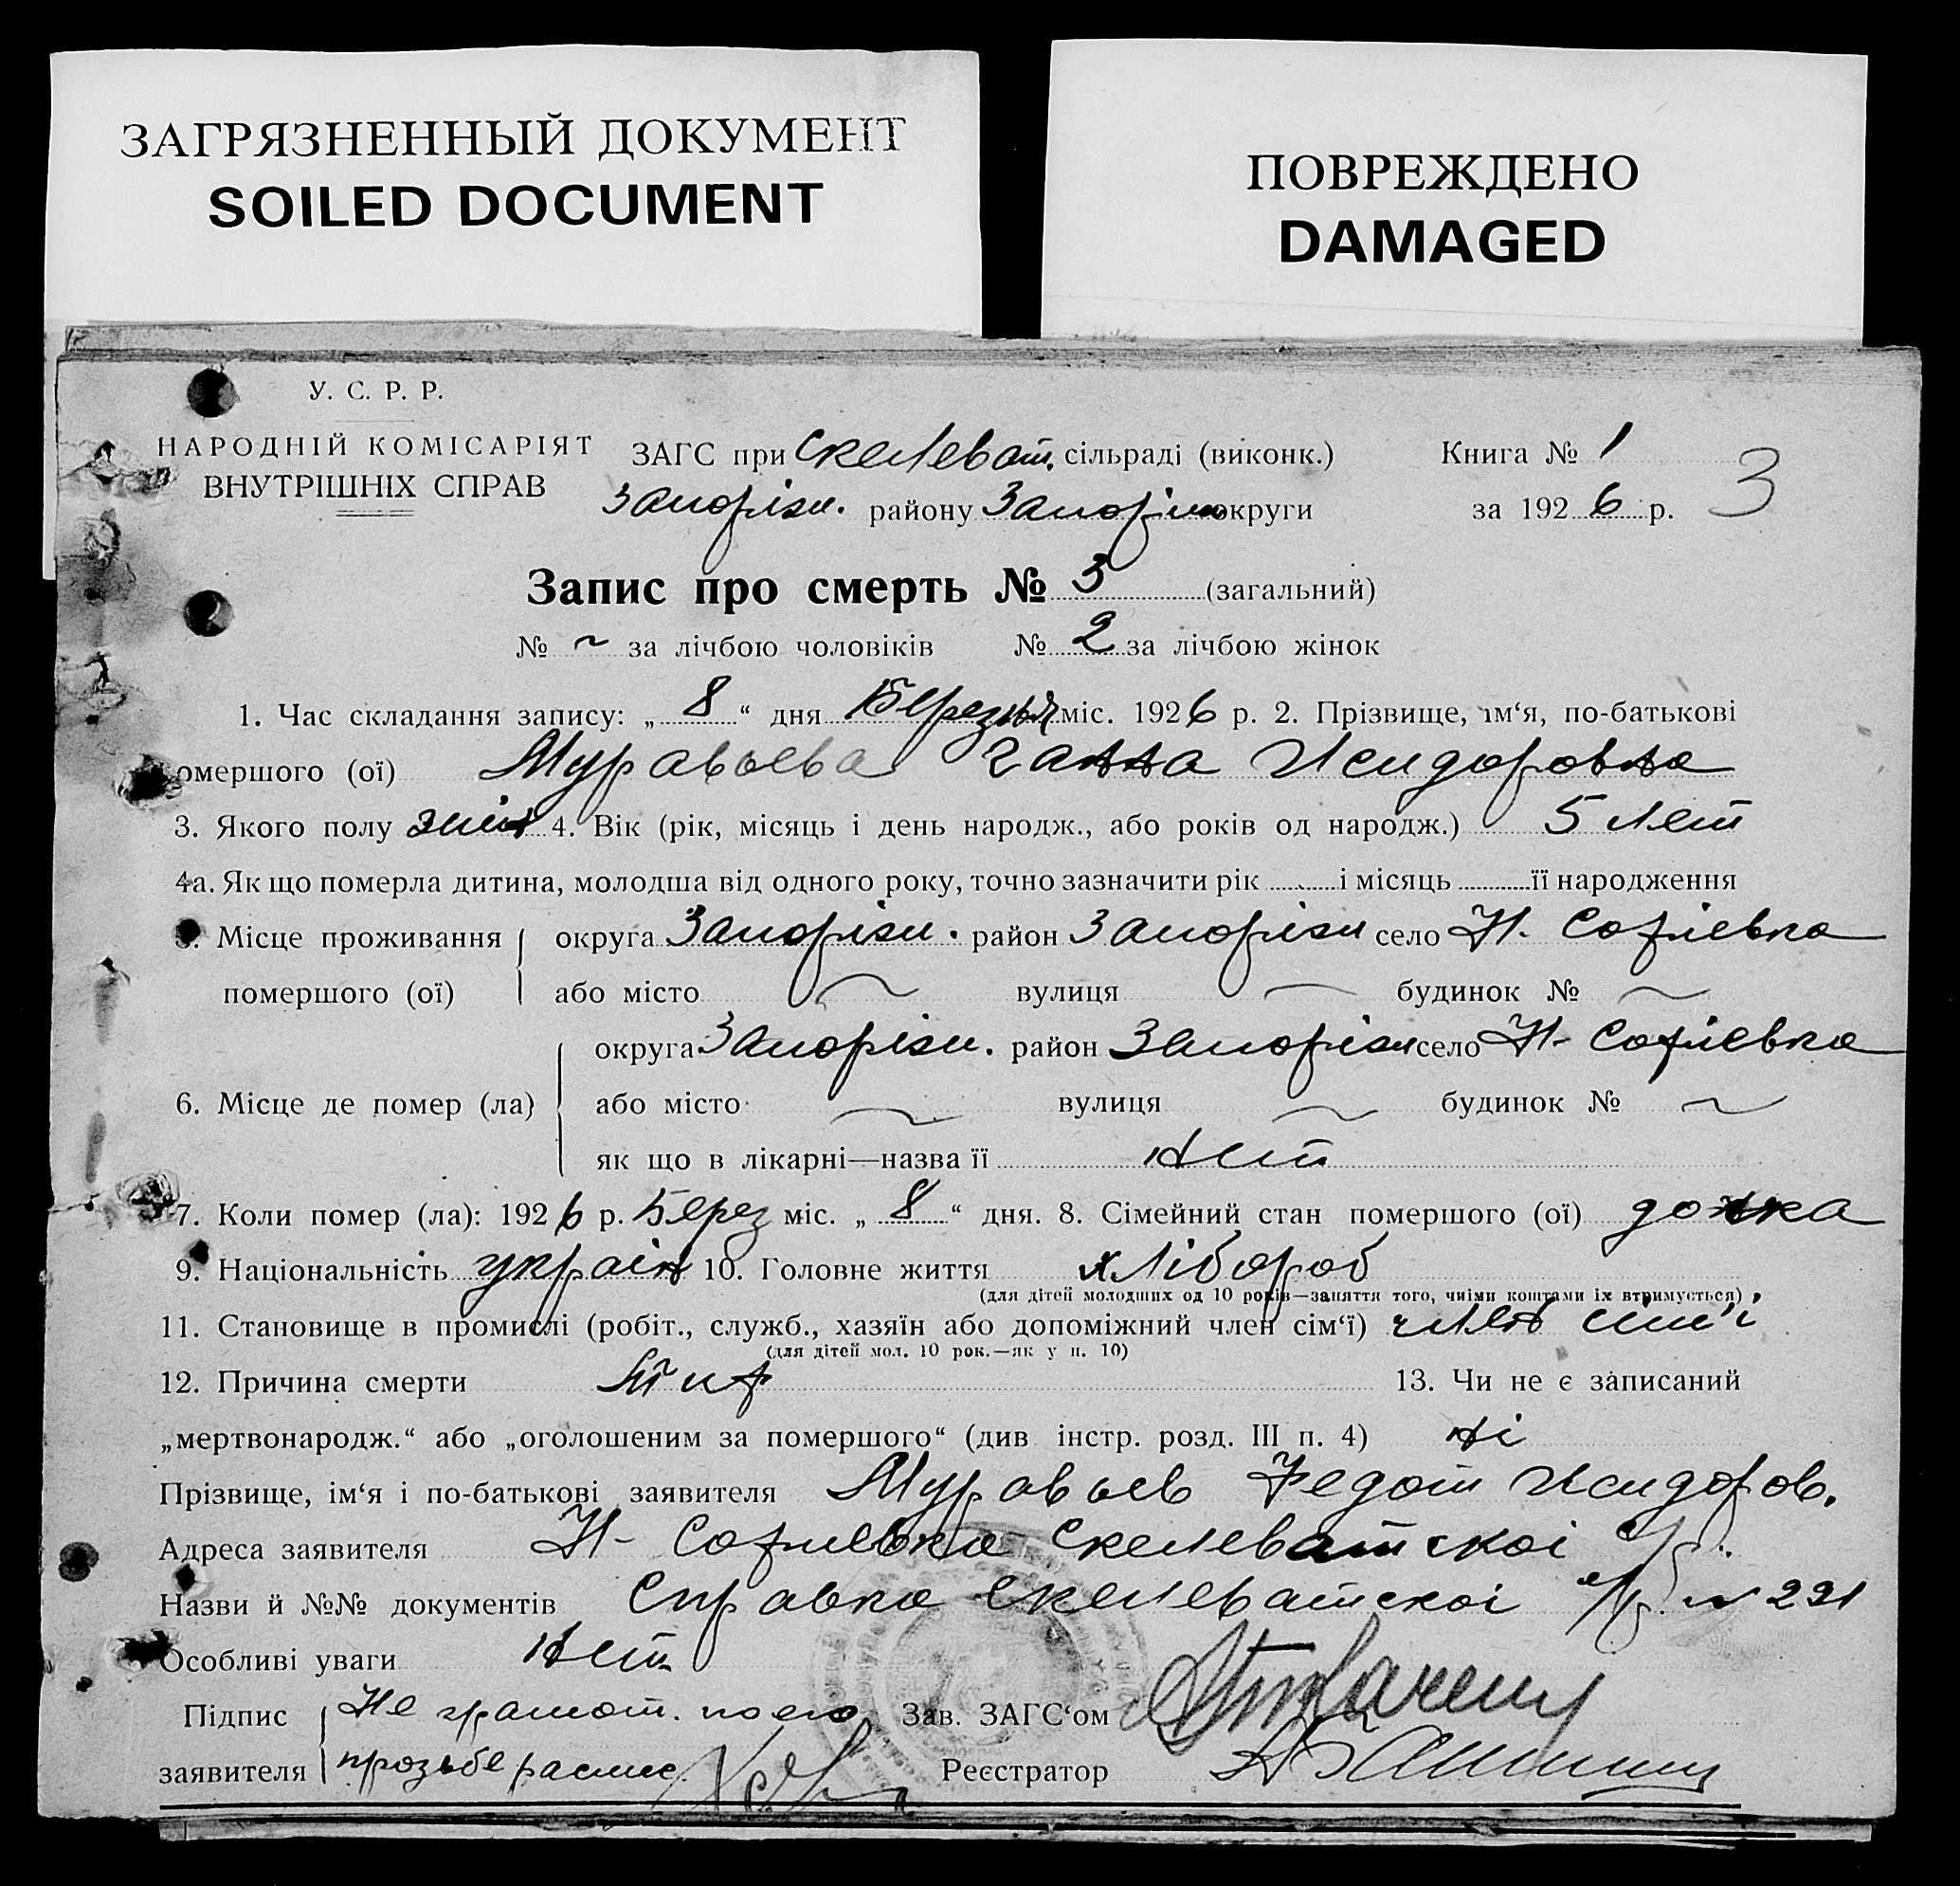 ЗАГРЯЗНЕННЫЙ ДОКУМЕНТ
SOILED DOCUMENT
ПОВРЕЖДЕНО
DAMAGED
У. С. Р. Р.
НАРОДНІЙ КОМІСАРІЯТ
ВНУТРІШНІХ СПРАВ
ЗАГС при Скелеват. сільраді (виконк.)
Запоріж. району Запоріж округи
Книга № 1
за 1926 р.
3
Запис про смерть № 3 (загальний)
№ ~ за лічбою чоловіків № 2 за лічбою жінок
1. Час складання запису: „ 8 “ дня Березня міс. 1926 р. 2. Прізвище, ім‘я, по-батькові
омершого (ої) Муравьева Ганна Исидоровна
3. Якого полу жін 4. Вік (рік, місяць і день народж., або років од народж.) 5 лет
4а. Як що померла дитина, молодша від одного року, точно зазначити рік і місяць її народження
5. Місце проживання округа Запоріж. район Запоріж село Н. Софіевка
помершого (ої) або місто ~ вулиця ~ будинок № ~
округа Запоріж. район Запоріж село Н- Софіевка
6. Місце де помер (ла) або місто ~ вулиця ~ будинок № ~
як що в лікарні—назва її нет
7. Коли помер (ла): 1926 р. Берез міс. „ 8 “ дня. 8. Сімейний стан помершого (ої) дочка
9. Національність украін 10. Головне життя хлібороб
(для дітей молодших од 10 років—заняття того, чиїми коштами їх втримується)
11. Становище в промислі (робіт., служб., хазяїн або допоміжний член сім‘ї) член сим'і
(для дітей мол. 10 рок.—як у п. 10)
12. Причина смерти Тиф 13. Чи не є записаний
„мертвонародж.“ або „оголошеним за помершого“ (див інстр. розд. III п. 4) ні
Прізвище, ім‘я і по-батькові заявителя Муравьев Федот Исидоров.
Адреса заявителя Н- Софиевка Скелеватскоі с/р.
Назви й №№ документів Справка Скелеватскоі с/р. № 221
Особливі уваги нет
Підпис Не грамот. по его Зав. ЗАГС‘ом
заявителя прозьбе распис. Реєстратор